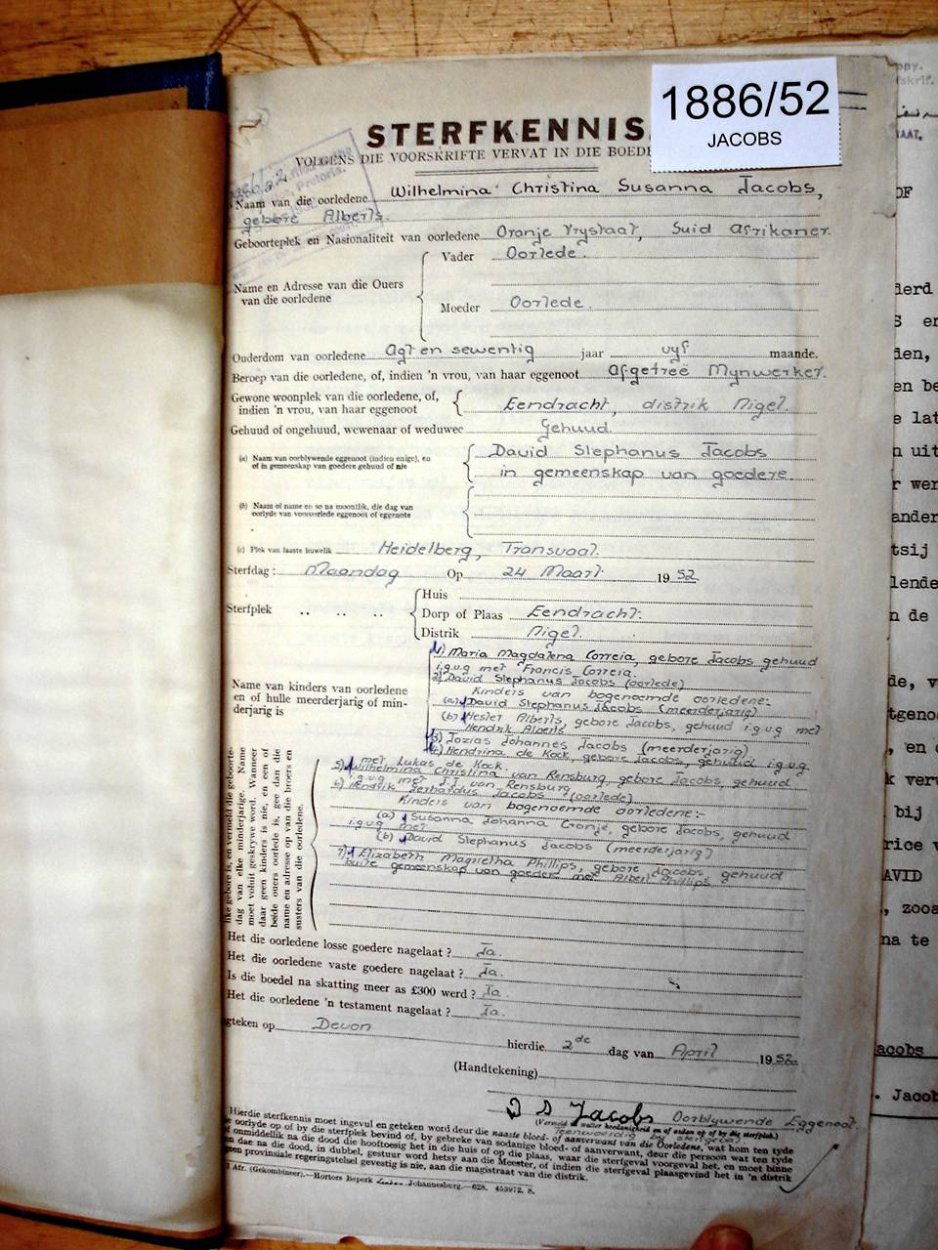 1886/52
JACOBS
STERFKENNIS
VOLGENS DIE VOORSKRIFTE VERVAT IN DIE BOEDE
Naam van die oorledene Wilhelmina Christina Susanna Jacobs,
gebore Alberts.
Geboorteplek en Nasionaliteit van oorledene Oranje Vrystaat, Suid Afrikaner.
Name en Adresse van die Ouers van die oorledene
Vader Oorlede.
Moeder Oorlede.
Ouderdom van oorledene Agt en sewentig jaar vyf maande.
Beroep van die oorledene, of, indien 'n vrou, van haar eggenoot Afgetree Mynwerker.
Gewone woonplek van die oorledene, of,
indien 'n vrou, van haar eggenoot Eendracht, distrik Nigel.
Gehuud of ongehuud, wewenaar of weduwee Gehuud.
(a) Naam van oorblywende eggenoot (indien enige), en David Stephanus Jacobs
of in gemeenskap van goedere gehuud of nie in gemeenskap van goedere.
(b) Naam of name en so na moontlik, die dag van
oorlyde van vooroorlede eggenoot of eggenote
(c) Plek van laaste huwelik Heidelberg, Transvaal.
Sterfdag: Maandag Op 24 Maart 1952
Sterfplek .. .. ..
Huis
Dorp of Plaas Eendracht.
Distrik Nigel.
Name van kinders van oorledene
en of hulle meerderjarig of min-
derjarig is
1) Maria Magdalena Correia, gebore Jacobs gehuud
i.g.v.g met Francis Correia.
2) David Stephanus Jacobs (oorlede)
Kinders van bogenoemde oorledene:-
(a) David Stephanus Jacobs (meerderjarig)
(b) Hester Alberts, gebore Jacobs, gehuud i.g.v.g met
Hendrik Alberts
3) Jozias Johannes Jacobs (meerderjarig)
4) Hendrina de Kock, gebore Jacobs, gehuud i.g.v.g.
met Lukas de Kock.
5) Wilhelmina Christina van Rensburg, gebore Jacobs, gehuud
i.g.v.g met J.J van Rensburg
6) Hendrik Gerhardus Jacobs (oorlede)
Kinders van bogenoemde oorledene:-
(a) Susanna Johanna Cronje, gebore Jacobs, gehuud
i.g.v.g met
(b) David Stephanus Jacobs (meerderjarig)
7) Elizabeth Magrietha Phillips, gebore Jacobs gehuud
buite gemeenskap van goedere met Albert Phillips
like gebore is, en vermeld die geboorte-
dag van elke minderjarige. Name
moet voluit geskrywe word. Wanneer
daar geen kinders is nie, en een of
beide ouers oorlede is, gee dan die
name en adresse op van die broers en
susters van die oorledene.
Het die oorledene losse goedere nagelaat? Ja.
Het die oorledene vaste goedere nagelaat? Ja.
Is die boedel na skatting meer as £300 werd? Ja.
Het die oorledene 'n testament nagelaat? Ja.
geteken op Devon
hierdie 2de dag van April 1952.
(Handtekening)
D S Jacobs Oorblywende Eggenoot
Hierdie sterfkennis moet ingevul en geteken word deur die naaste bloed- of aanverwant van die Oorledene, wat hom ten tyde
oorlyde op of by die sterfplek bevind of, by gebreke van sodanige bloed- of aanverwant, deur die persoon wat ten tyde
onmiddellik na die dood die hooftoesig het in die huis of op die plaas, waar die sterfgeval voorgeval het, en moet binne
dae na die dood, in dubbel, gestuur word hetsy aan die Meester, of indien die sterfgeval plaasgevind het in 'n distrik
geen provinsiale regeringsetel gevestig is nie, aan die magistraat van die distrik.
Afr. (Gekombineer).—Hortors Beperk Johannesburg—628. 453972. 8.